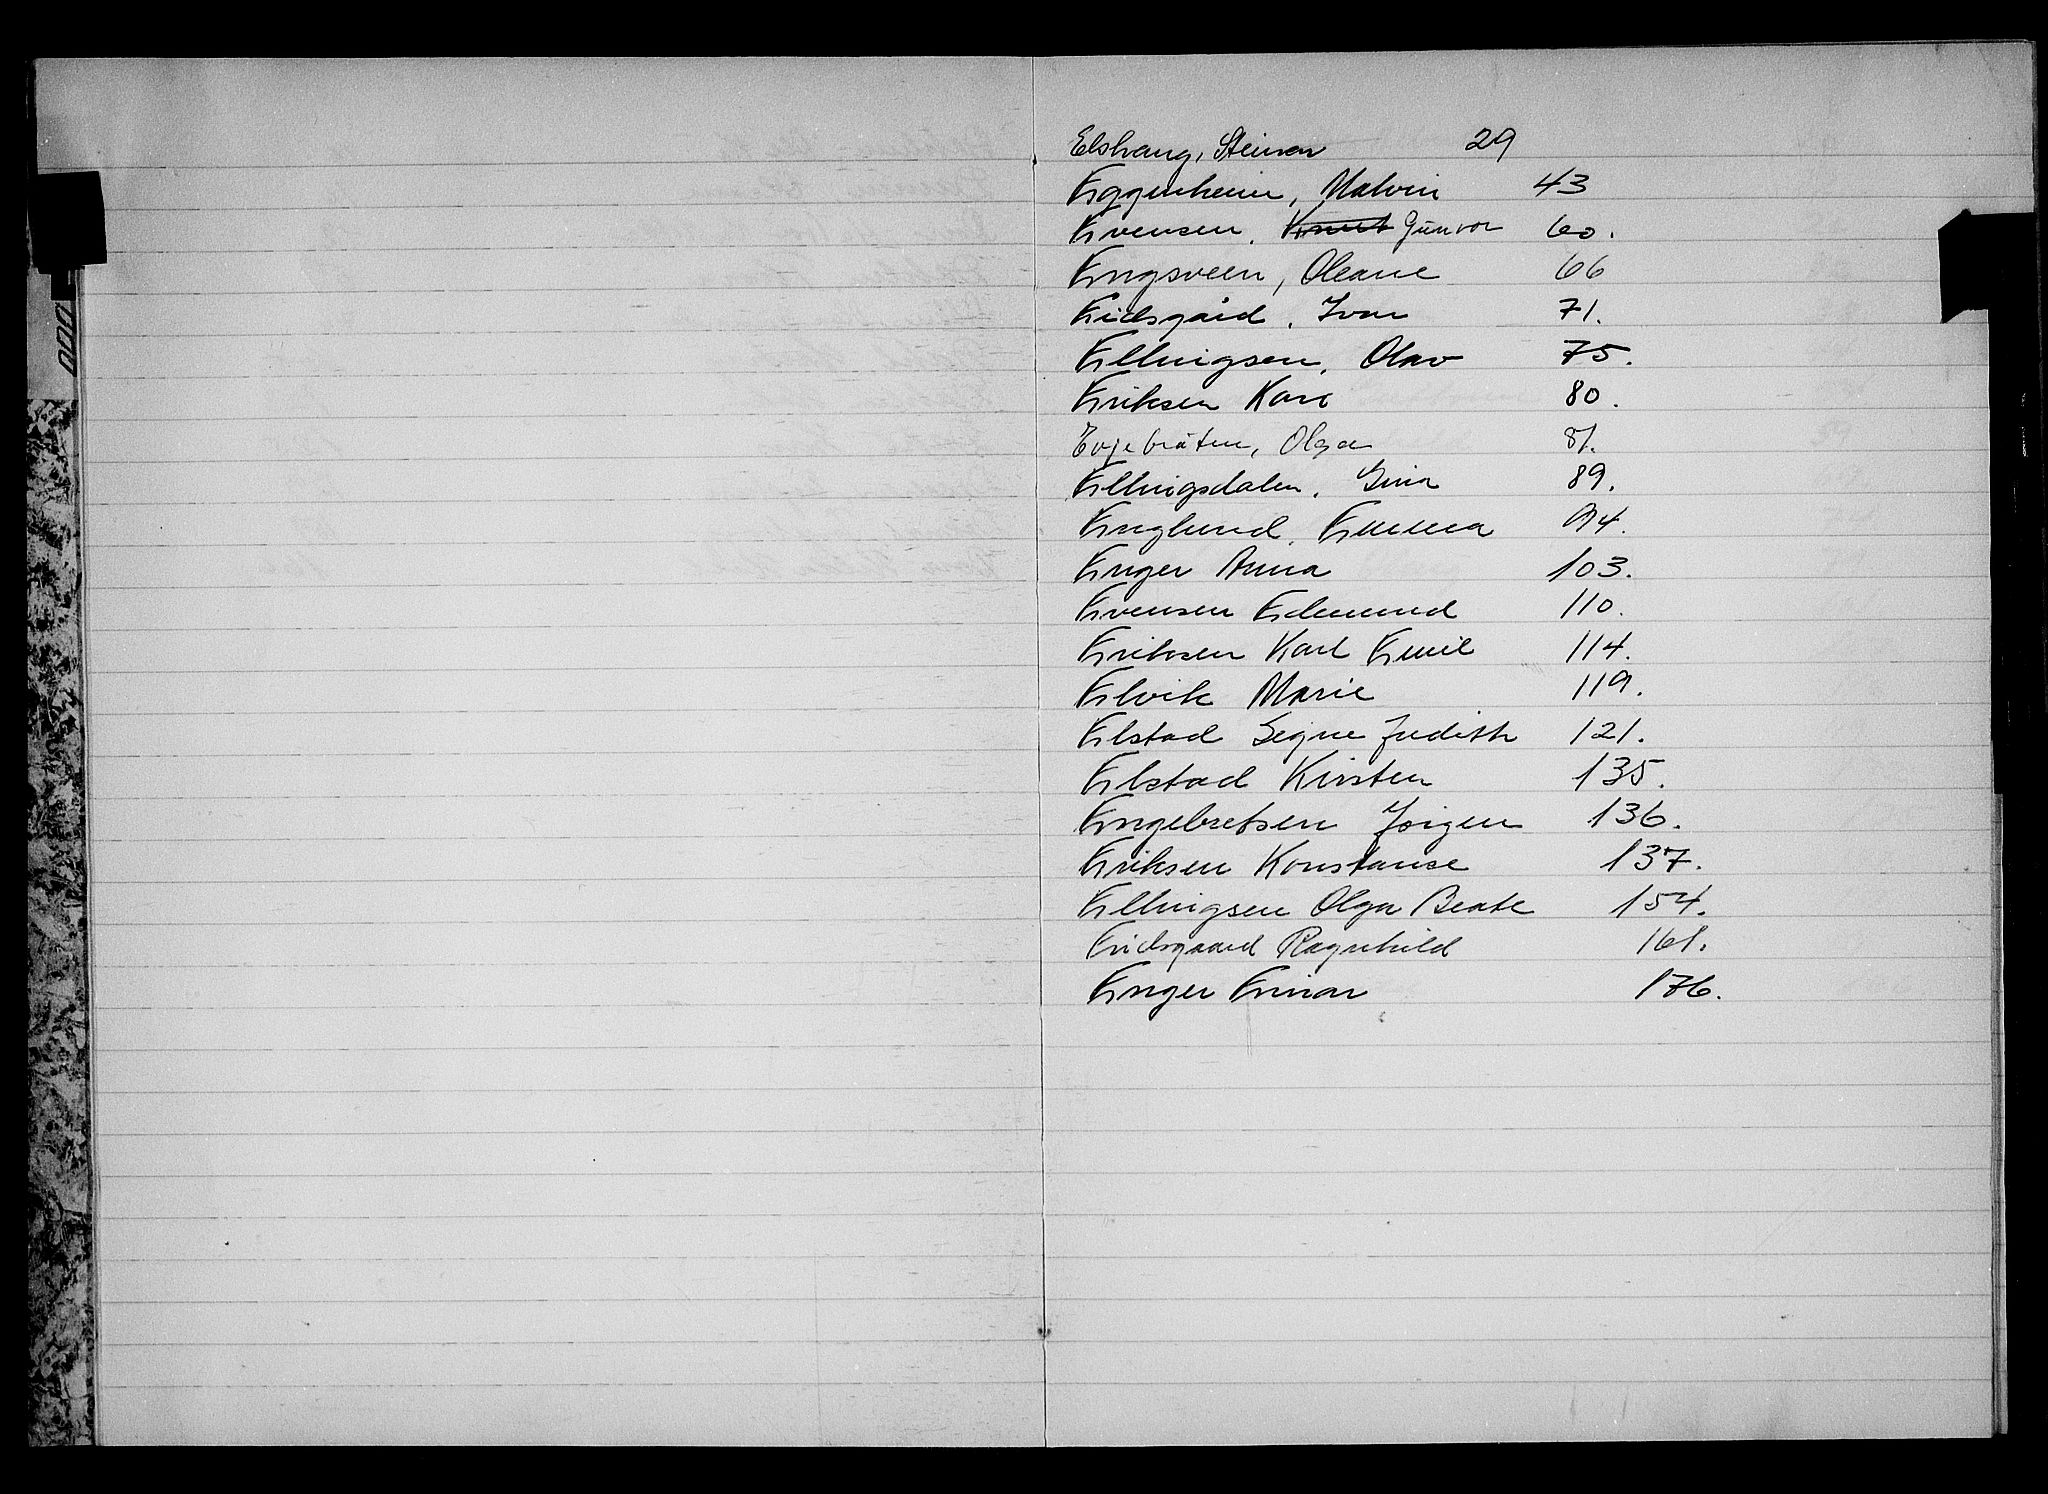 Elshaug, Steinar 29
Eggenheim, Malvin 43
Evensen, Knut Gunvor 60.
Engsveen, Oleane 66
Eidsgård, Ivar 71.
Ellingsen, Olav 75.
Eriksen Kari 80.
Evjebråten, Olga 81.
Ellingsdalen, Gina 89.
Englund, Emma 94.
Enger Anna 103.
Evensen Edmund 110.
Eriksen Karl Emil 114.
Elvik Marie 119.
Elstad Signe Judith 121.
Elstad Kirsten 135.
Engebretsen Jørgen 136.
Eriksen Konstanse 137.
Ellingsen Olga Beate 154.
Eidsgaard Ragnhild 161.
Enger Einar 176.